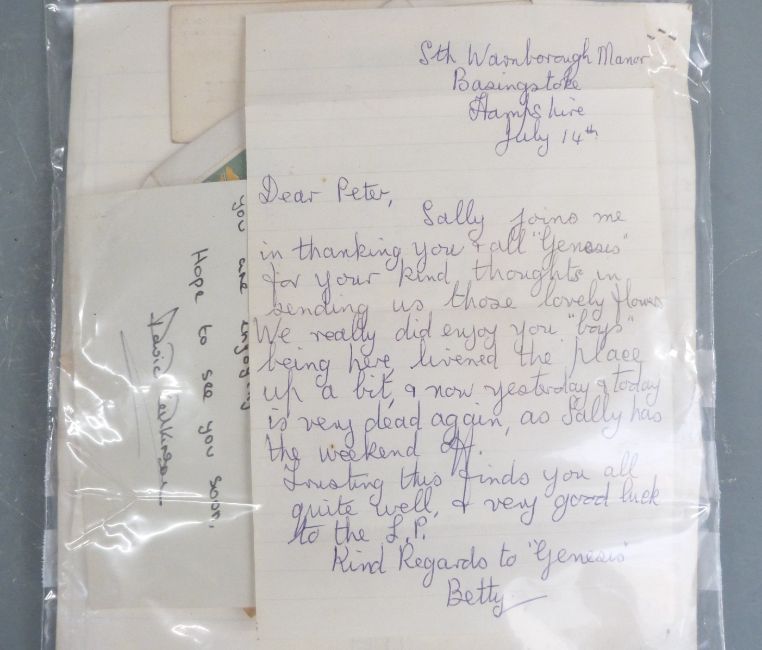 Sth Warnborough Manor
Basingstoke
Hampshire
July 14th
Dear Peter,
Sally joins me
in thanking you & all "Genesis"
for your kind thoughts in
sending us those lovely flowers
We really did enjoy you "boys"
being here, livened the place
up a bit, & now yesterday & today
is very dead again, as Sally has
the weekend off.
Trusting this finds you all
quite well, & very good luck
to the L.P.
Kind Regards to "Genesis"
Betty
you are enjoying
Hope to see you soon,